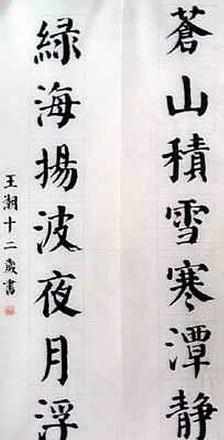 蒼山積雪寒潭静
緑海揚波夜月浮
王潮十二歲書